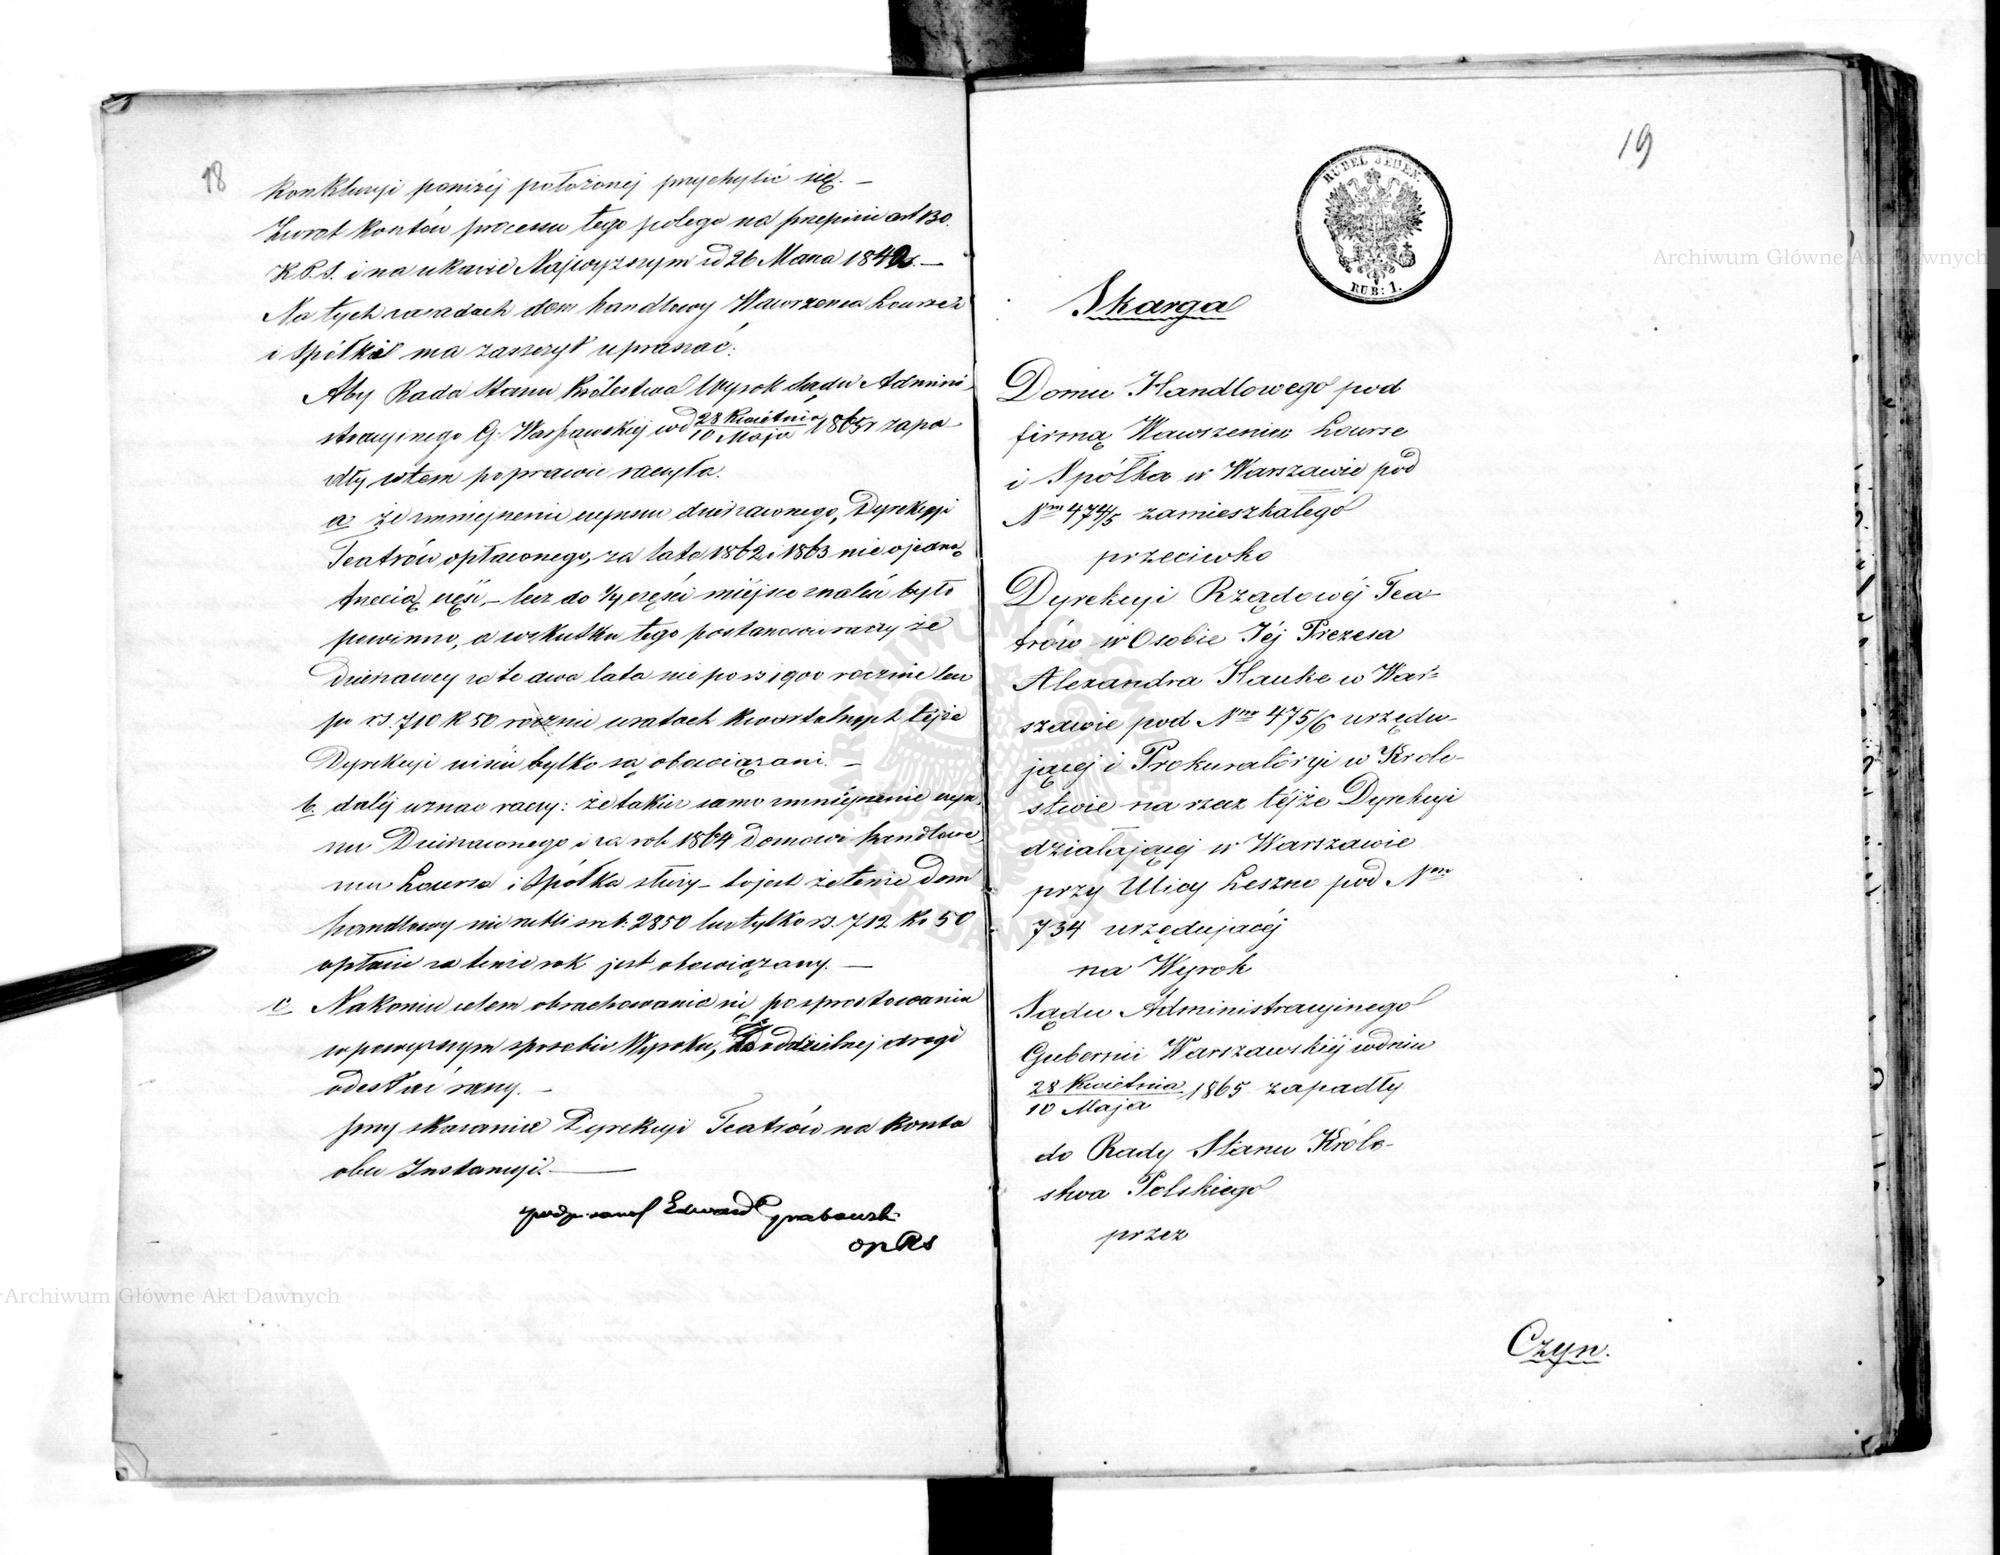 18
Konkluzyi poniżéj położonej przychylić się. —
Zwrot kosztów processu tego polega na przepisie art 130.
K.P.S. i na ukazie Najwyższym z d 26 Marca 1842 r. —
Na tych zasadach dom handlowy Wawrzeńca Lourse
i Spółka ma zaszczyt upraszać:
Aby Rada Stanu Królestwa Wyrok Sądu Admini-
stracyjnego G. Warszawskiej w d 28 Kwietnia / 10 Maja 1865 r zapa-
dły w tem poprawić raczyła.
a. że zmniejszenie czynszu dzierżawnego, Dyrekcyi
Teatrów opłaconego, za lata 1862 i 1863 nie o jedną
trzecią część, — lecz do 1/4 części miejsce znaleść było
powinno, a w skutku tego postanowić raczy że
Dzierżawcy za te dwa lata nie po rs 1900 rocznie lecz
po rs. 710 k 50 rocznie w ratach kwartalnych téjże
Dyrekcyi uiścić tylko są obowiązani. —
b. daléj uznać raczy: że takież samo zmniejszenie czyn-
szu Dzierżawnego i za rok 1864 Domowi handlowe-
mu Lourse i Spółka służy — to jest że tenże Dom
handlowy nie rubli sr. 2850 lecz tylko rs. 712 ko 50
opłacić za tenże rok jest obowiązany. —
c Nakoniec celem obrachowania się po sprostowaniu
w powyższym sposobie Wyroku, do oddzielnej drogi
odesłać raczy. —
przy skazaniu Dyrekcyi Teatrów na koszta
obu Instancyi. —
podpisano Edward Grabowski
OpRS
19
RUBEL JEDEN.
RUB: 1.
Skarga
Domu Handlowego pod
firmą Wawrzeniec Lourse
i Spółka w Warszawie pod
Nrm 474/5 zamieszkałego
przeciwko
Dyrekcyi Rządowéj Tea-
trów w Osobie Jéj Prezesa
Alexandra Hauke w War-
szawie pod Nrm 475/6 urzędu-
jącej i Prokuratóryi w Króle-
stwie na rzecz téjże Dyrekcyi
działającej w Warszawie
przy Ulicy Leszno pod Nrm
734 urzędującéj
na Wyrok
Sądu Administracyjnego
Gubernii Warszawskiéj w dniu
28 Kwietnia / 10 Maja 1865 zapadły
do Rady Stanu Króle-
stwa Polskiego
przez
Czyn.
Archiwum Główne Akt Dawnych
Archiwum Główne Akt Dawnych
ARCHIWUM GŁÓWNE AKT DAWNYCH